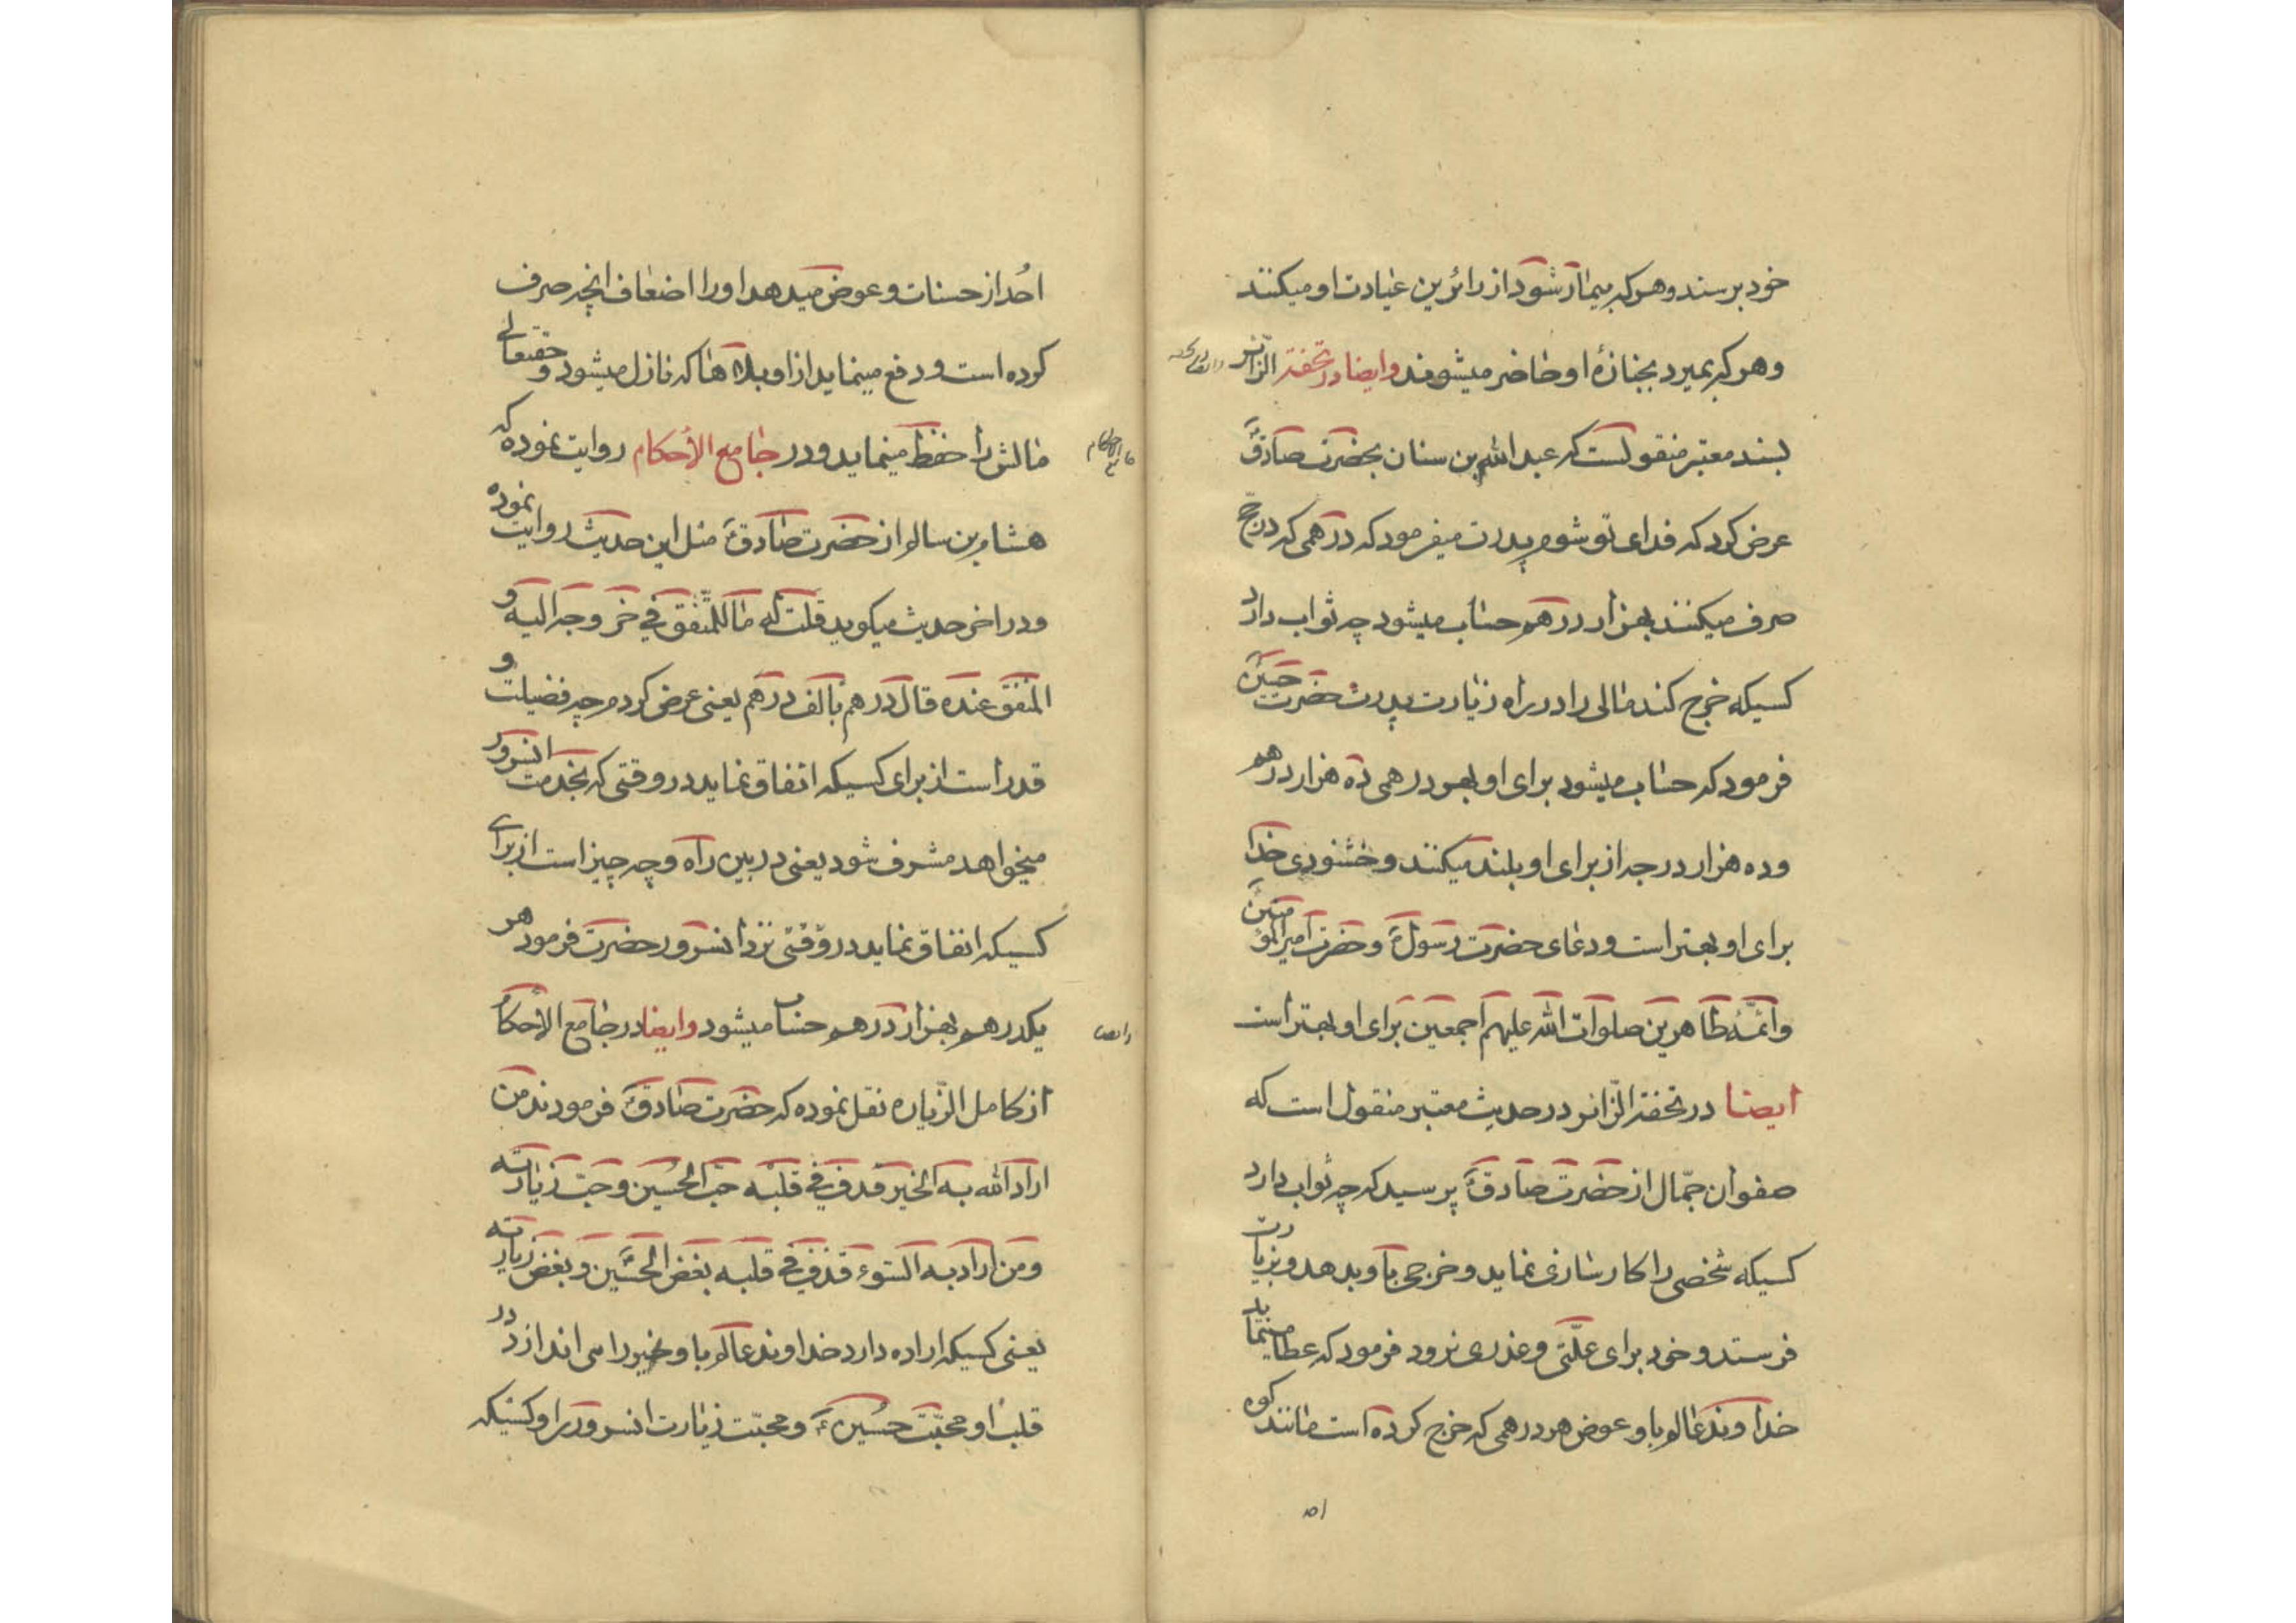 خود برسند و هر که بیمار شود از زائرین عیادت او میکنند
و هر که بمیرد بجنازهٔ او حاضر میشوند و ایضا در تحفة الزائر
بسند معتبر منقولست که عبدالله بن سنان بحضرت صادقؑ
عرض کرد که فدای تو شوم پدرت میفرمود که درهمی که در حج
صرف میکنند بهزار درهم حساب میشود چه ثواب دارد
کسیکه خرج کند مالی را در راه زیارت پدرت حضرت حسینؑ
فرمود که حساب میشود برای او بهر درهمی ده هزار درهم
و ده هزار درجه از برای او بلند میکنند و خشنودی خدا
برای او بهتر است و دعای حضرت رسولؐ و حضرت امیرالمؤمنینؑ
و ائمّهٔ طاهرین صلوات الله علیهم اجمعین برای او بهتر است
ایضا در تحفة الزّائر در حدیث معتبر منقول است که
صفوان جمّال از حضرت صادقؑ پرسید که چه ثواب دارد
کسیکه شخصی را کارسازی نماید و خرجی باو بدهد و بزیارت
فرستد و خود برای علّتی و عذری نرود فرمود که عطا مینماید
خداوند عالم باو عوض هر درهمی که خرج کرده است مانند کوه
احد از حسنات و عوض میدهد او را اضعاف انچه صرف
کرده است و دفع مینماید از او بلاها که نازل میشود و حقتعالی
مالش را حفظ مینماید و در جامع الأحکام روایت نموده که
هشام بن سالم از حضرت صادقؑ مثل این حدیث روایت نموده
و در اخر حدیث میکوید قلت له ما للمنفق فی خروجه الیه و
المنفق عنده قال درهم بالف درهم یعنی عرض کردم چه فضیلت و
قدر است از برای کسیکه انفاق نماید در وقتی که بخدمت انسرور
میخواهد مشرف شود یعنی در بین راه و چه چیز است از برای
کسیکه انفاق نماید در وقتی نزد انسرور حضرت فرمود هر
یکدرهم بهزار درهم حساب میشود و ایضا در جامع الأحکام
از کامل الزّیاره نقل نموده که حضرت صادقؑ فرمودند من
اراد الله به الخیر قذف فی قلبه حبّ الحسین و حبّ زیارته
و من اراد به السّوء قذف فی قلبه بغض الحسینؑ و بغض زیارته
یعنی کسیکه اراده دارد خداوند عالم باو خیر را می اندازد در
قلب او محبّت حسینؑ و محبّت زیارت انسرور را و کسیکه